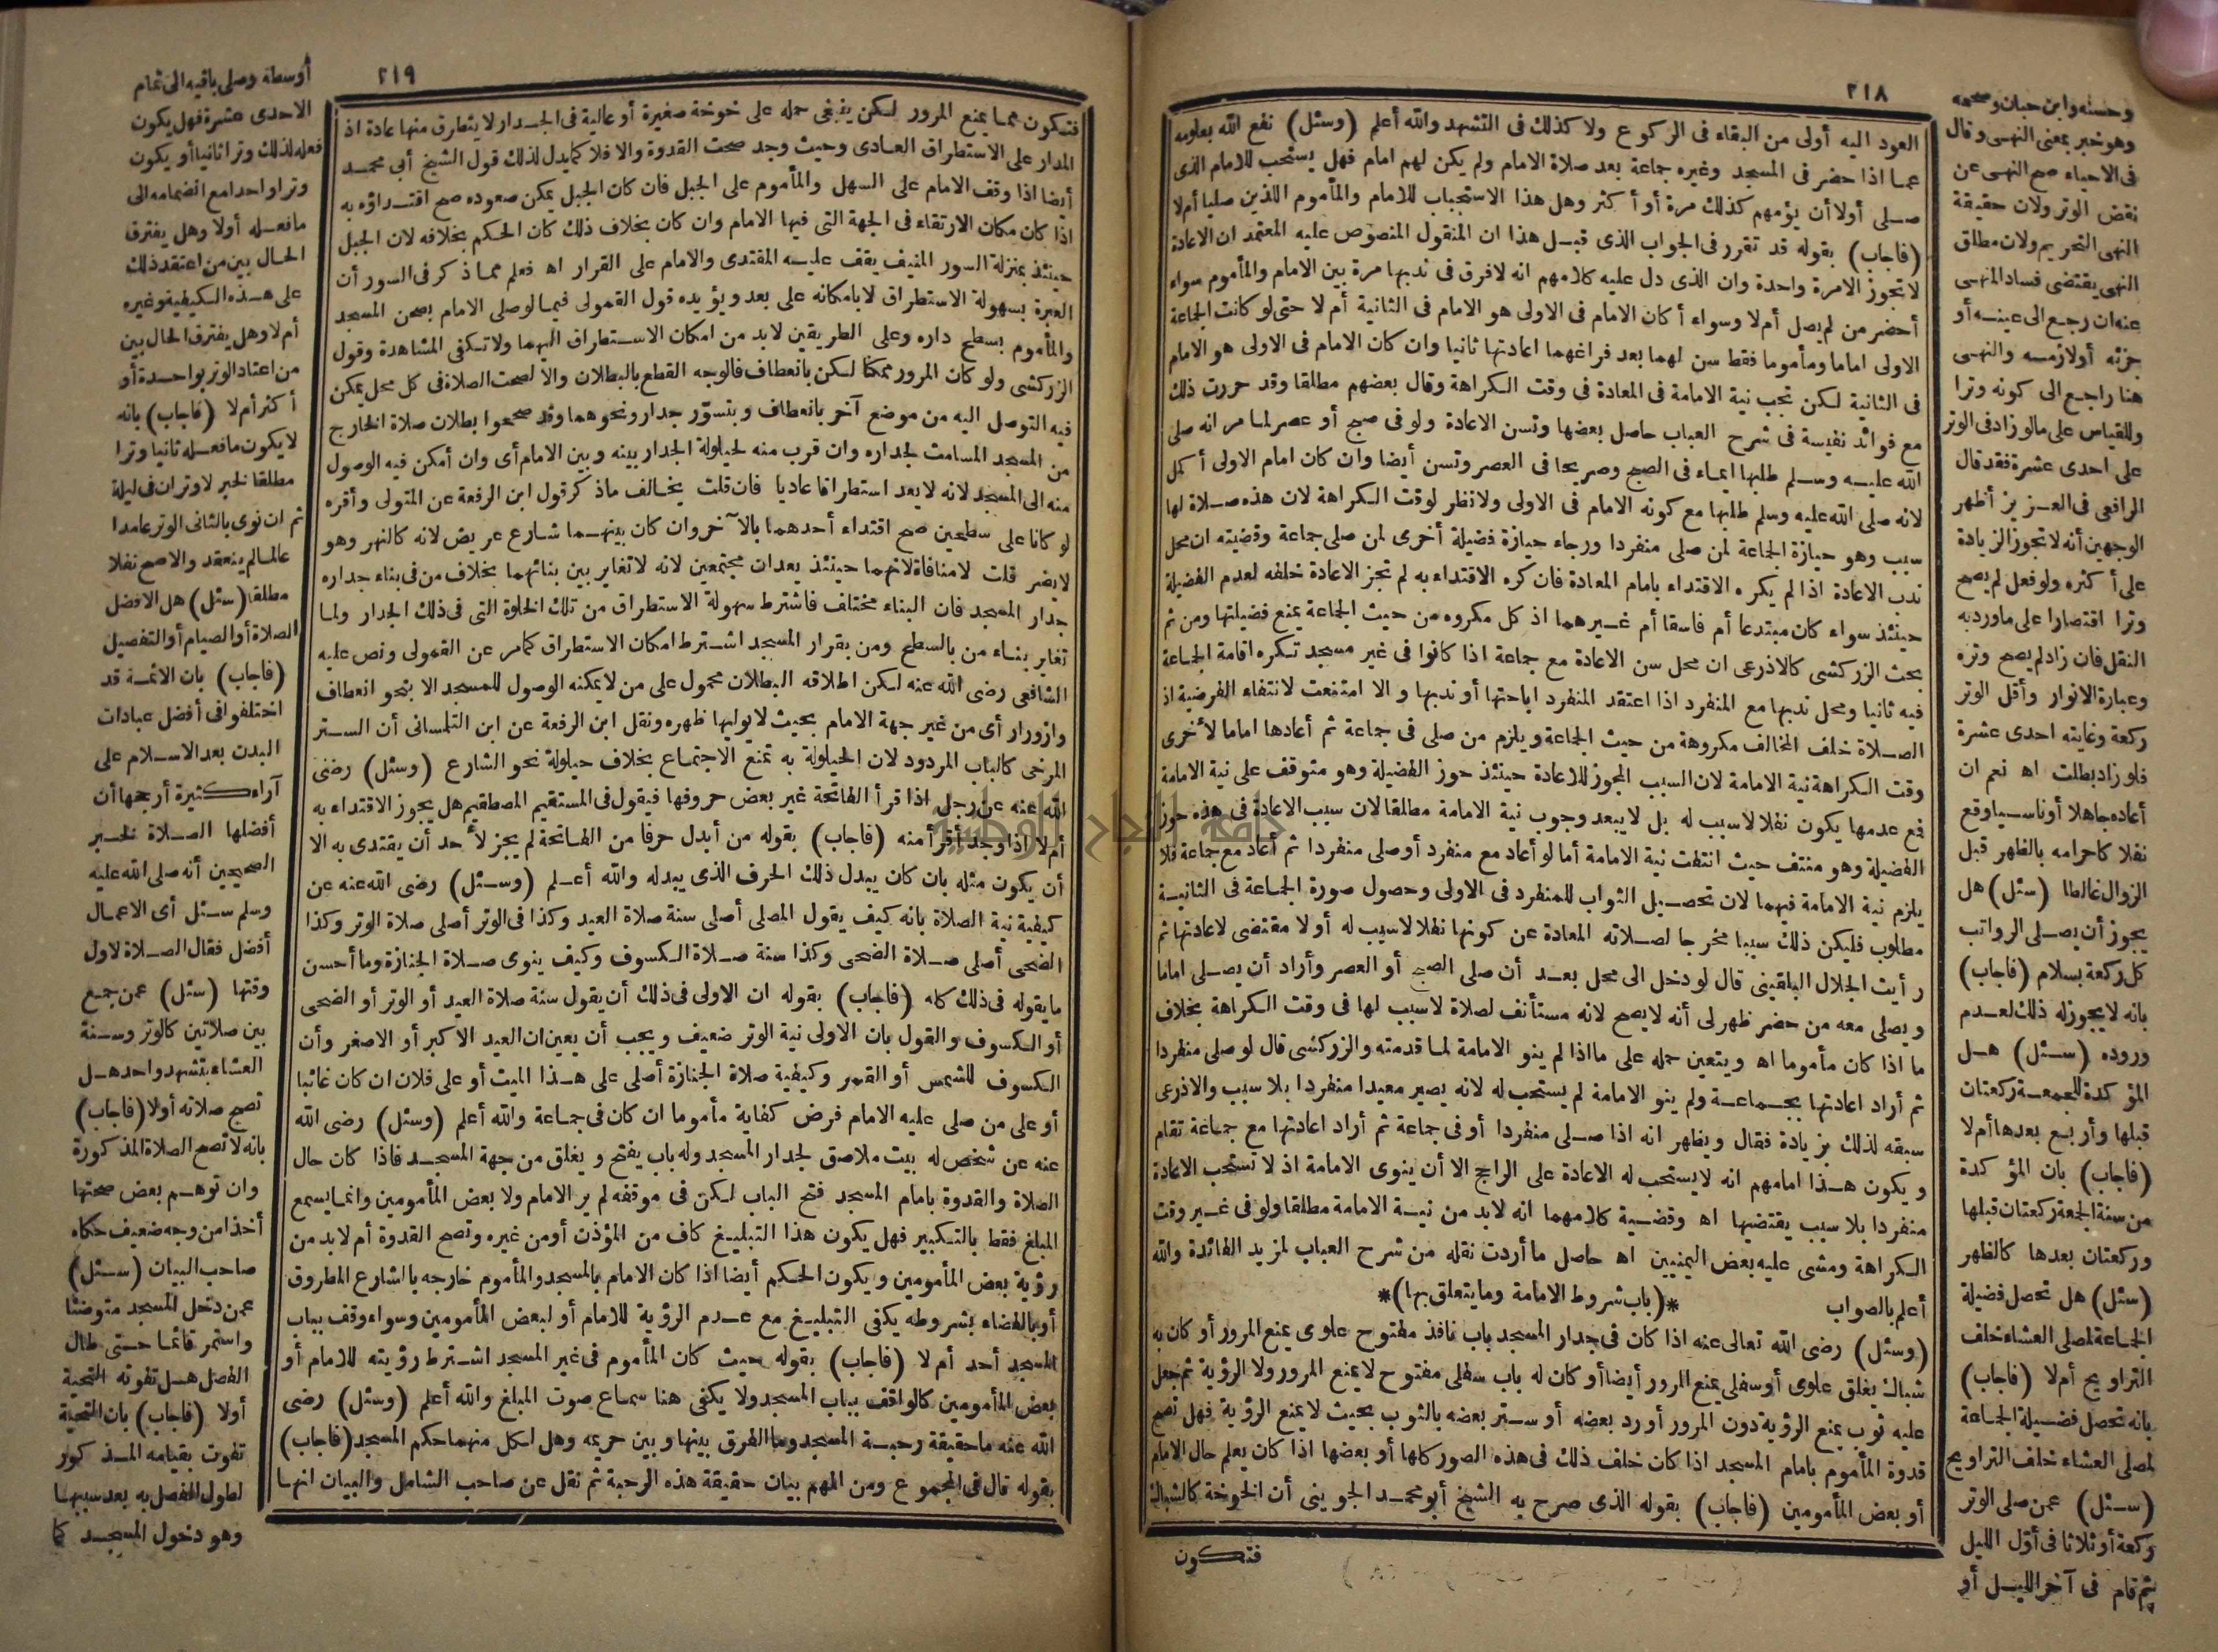 ٢١٨
العود اليه أولى من البقاء فى الركوع ولا كذلك فى التشهد والله أعلم (وسئل) نفع الله بعلومه
عما اذا حضر فى المسجد وغيره جماعة بعد صلاة الامام ولم يكن لهم امام فهل يستحب للامام الذى
صلى أولا أن يؤمهم كذلك مرة أو أكثر وهل هذا الاستحباب للامام والمأموم اللذين صليا أم لا
(فاجاب) بقوله قد تقرر فى الجواب الذى قبل هذا ان المنقول المنصوص عليه المعتمد ان الاعادة
لا تجوز الا مرة واحدة وان الذى دل عليه كلامهم انه لا فرق فى ندبها مرة بين الامام والمأموم سواء
أحضر من لم يصل أم لا وسواء أ كان الامام فى الاولى هو الامام فى الثانية أم لا حتى لو كانت الجاعة
الاولى اماما ومأموما فقط سن لهما بعد فراغهما اعادتها ثانيا وان كان الامام فى الاولى هو الامام
فى الثانية لكن تجب نية الامامة فى المعادة فى وقت الكراهة وقال بعضهم مطلقا وقد حررت ذلك
مع فوائد نفيسة فى شرح العباب حاصل بعضها وتسن الاعادة ولو فى صبح أو عصر لما مر انه صلى
الله عليه وسلم طلبها ايماء فى الصبح وصريحا فى العصر وتسن أيضا وان كان امام الاولى أكمل
لانه صلى الله عليه وسلم طلبها مع كونه الامام فى الاولى ولا نظر لوقت الكراهة لان هذه صلاة لها
سبب وهو حيازة الجاعة لمن صلى منفردا ورجاء حيازة فضيلة أخرى لمن صلى جماعة وقضيته ان محل
ندب الاعادة اذا لم يكره الاقتداء بامام المعادة فان كره الاقتداء به لم تجز الاعادة خلفه لعدم الفضيلة
حينئذ سواء كان مبتدعا أم فاسقا أم غيرهما اذ كل مكروه من حيث الجاعة يمنع فضيلتها ومن ثم
بحث الزركشى كالاذرعى ان محل سن الاعادة مع جماعة اذا كانوا فى غير مسجد تكره اقامة الجاعة
فيه ثانيا ومحل ندبها مع المنفرد اذا اعتقد المنفرد اباحتها أو ندبها والا امتنعت لانتفاء الفرضية اذ
الصلاة خلف المخالف مكروهة من حيث الجاعة ويلزم من صلى فى جماعة ثم أعادها اماما لأخرى
وقت الكراهة نية الامامة لان السبب المجوز للاعادة حينئذ حوز الفضيلة وهو متوقف على نية الامامة
فع عدمها يكون نفلا لا سبب له بل لا يبعد وجوب نية الامامة مطلقا لان سبب الاعادة فى هذه حوز
الفضيلة وهو منتف حيث انتفت نية الامامة أما لو أعاد مع منفرد أو صلى منفردا ثم أعاد مع جماعة فلا
يلزم نية الامامة فيهما لان تحصيل الثواب للمنفرد فى الاولى وحصول صورة الجماعة فى الثانية
مطلوب فليكن ذلك سببا مخرجا لصلاته المعادة عن كونها نفلا لا سبب له أو لا مقتضى لاعادتها ثم
رأيت الجلال البلقينى قال لو دخل الى محل بعد أن صلى الصبح أو العصر وأراد أن يصلى اماما
ويصلى معه من حضر ظهر لى أنه لا يصح لانه مستأنف لصلاة لا سبب لها فى وقت الكراهة بخلاف
ما اذا كان مأموما اه ويتعين حمله على ما اذا لم ينو الامامة لما قدمته والزركشى قال لو صلى منفردا
ثم أراد اعادتها بجماعة ولم ينو الامامة لم يستحب له لانه يصير معيدا منفردا بلا سبب والاذرعى
سبقه لذلك بزيادة فقال ويظهر انه اذا صلى منفردا أو فى جماعة ثم أراد اعادتها مع جماعة تقام
ويكون هذا امامهم انه لا يستحب له الاعادة على الراجح الا أن ينوى الامامة اذ لا تستحب الاعادة
منفردا بلا سبب يقتضيها اه وقضية كلامهما انه لا بد من نية الامامة مطلقا ولو فى غير وقت
الكراهة ومشى عليه بعض اليمنيين اه حاصل ما أردت نقله من شرح العباب لمزيد الفائدة والله
أعلم بالصواب *(باب شروط الامامة وما يتعلق بها)*
(وسئل) رضى الله تعالى عنه اذا كان فى جدار المسجد باب نافذ مفتوح علوى يمنع المرور أو كان به
شباك يغلق علوى أو سفلى يمنع المرور أيضا أو كان له باب سفلى مفتوح لا يمنع المرور ولا الرؤية ثم جعل
عليه ثوب يمنع الرؤية دون المرور أو رد بعضه أو ستر بعضه بالثوب بحيث لا يمنع الرؤية فهل تصح
قدوة المأموم بامام المسجد اذا كان خلف ذلك فى هذه الصور كلها أو بعضها اذا كان يعلم حال الامام
أو بعض المأمومين (فاجاب) بقوله الذى صرح به الشيخ أبو محمد الجوينى أن الخوخة كالشباك
فتكون
وحسنه وابن حبان وصححه
وهو خبر بمعنى النهى وقال
فى الاحياء صح النهى عن
نقض الوتر ولان حقيقة
النهى التحريم ولان مطلق
النهى يقتضى فساد المنهى
عنه ان رجع الى عينه أو
جزئه أو لازمه والنهى
هنا راجع الى كونه وترا
وللقياس على ما لو زاد فى الوتر
على احدى عشرة فقد قال
الرافعى فى العزيز أظهر
الوجهين أنه لا تجوز الزيادة
على أكثره ولو فعل لم يصح
وترا اقتصارا على ما ورد به
النقل فان زاد لم يصح وتره
وعبارة الانوار وأقل الوتر
ركعة وغايته احدى عشرة
فلو زاد بطلت اه نعم ان
أعاده جاهلا أو ناسيا وقع
نفلا كاحرامه بالظهر قبل
الزوال غالطا (سئل) هل
يجوز أن يصلى الرواتب
كل ركعة بسلام (فاجاب)
بانه لا يجوز له ذلك لعدم
وروده (سئل) هل
المؤكدة للجمعة ركعتان
قبلها وأربع بعدها أم لا
(فاجاب) بان المؤكدة
من سنة الجمعة ركعتان قبلها
وركعتان بعدها كالظهر
(سئل) هل تحصل فضيلة
الجماعة لمصلى العشاء خلف
التراويح أم لا (فاجاب)
بانه تحصل فضيلة الجماعة
لمصلى العشاء خلف التراويح
(سئل) عمن صلى الوتر
ركعة أو ثلاثا فى أول الليل
ثم قام فى آخر الليل أو
٢١٩
فتكون مما يمنع المرور لكن ينبغى حمله على خوخة صغيرة أو عالية فى الجدار لا يتطرق منها عادة اذ
المدار على الاستطراق العادى وحيث وجد صحت القدوة والا فلا كما يدل لذلك قول الشيخ أبى محمد
أيضا اذا وقف الامام على السهل والمأموم على الجبل فان كان الجبل يمكن صعوده صح اقتداؤه به
اذا كان مكان الارتقاء فى الجهة التى فيها الامام وان كان بخلاف ذلك كان الحكم بخلافه لان الجبل
حينئذ بمنزلة السور المنيف يقف عليه المقتدى والامام على القرار اه فعلم مما ذكر فى السور أن
العبرة بسهولة الاستطراق لا بامكانه على بعد ويؤيده قول القمولى فيما لو صلى الامام بصحن المسجد
والمأموم بسطح داره وعلى الطريقين لا بد من امكان الاستطراق اليهما ولا تكفى المشاهدة وقول
الزركشى ولو كان المرور ممكنا لكن بانعطاف فالوجه القطع بالبطلان والا لصحت الصلاة فى كل محل يمكن
فيه التوصل اليه من موضع آخر بانعطاف وبتسور جدار ونحوهما وقد صححوا بطلان صلاة الخارج
من المسجد المسامت لجداره وان قرب منه لحيلولة الجدار بينه وبين الامام أى وان أمكن فيه الوصول
منه الى المسجد لانه لا يعد استطراقا عاديا فان قلت يخالف ما ذكر قول ابن الرفعة عن المتولى وأقره
لو كانا على سطحين صح اقتداء أحدهما بالآخر وان كان بينهما شارع عريض لانه كالنهر وهو
لا يضر قلت لا منافاة لانهما حينئذ يعدان مجتمعين لانه لا تغاير بين بنائهما بخلاف من فى بناء جداره
جدار المسجد فان البناء مختلف فاشترط سهولة الاستطراق من تلك الخلوة التى فى ذلك الجدار ولما
تغاير بناء من بالسطح ومن بقرار المسجد اشترط امكان الاستطراق كما مر عن القمولى ونص عليه
الشافعى رضى الله عنه لكن اطلاقه البطلان محمول على من لا يمكنه الوصول للمسجد الا بنحو انعطاف
وازورار أى من غير جهة الامام بحيث لا يوليها ظهره ونقل ابن الرفعة عن ابن التلمسانى أن الستر
المرخى كالباب المردود لان الحيلولة به تمنع الاجتماع بخلاف حيلولة نحو الشارع (وسئل) رضى
الله عنه عن رجل اذا قرأ الفاتحة غير بعض حروفها فيقول فى المستقيم المصطقيم هل يجوز الاقتداء به
أم لا اذا وجد أقرأ منه (فاجاب) بقوله من أبدل حرفا من الفاتحة لم يجز لأحد أن يقتدى به الا
أن يكون مثله بان كان يبدل ذلك الحرف الذى يبدله والله أعلم (وسئل) رضى الله عنه عن
كيفية نية الصلاة بانه كيف يقول المصلى أصلى سنة صلاة العيد وكذا فى الوتر أصلى صلاة الوتر وكذا
الضحى أصلى صلاة الضحى وكذا سنة صلاة الكسوف وكيف ينوى صلاة الجنازة وما أحسن
ما يقوله فى ذلك كله (فاجاب) بقوله ان الاولى فى ذلك أن يقول سنة صلاة العيد أو الوتر أو الضحى
أو الكسوف والقول بان الاولى نية الوتر ضعيف ويجب أن يعين ان العيد الأكبر أو الاصغر وأن
الكسوف للشمس أو القمر وكيفية صلاة الجنازة أصلى على هذا الميت أو على فلان ان كان غائبا
أو على من صلى عليه الامام فرض كفاية مأموما ان كان فى جماعة والله أعلم (وسئل) رضى الله
عنه عن شخص له بيت ملاصق لجدار المسجد وله باب يفتح ويغلق من جهة المسجد فاذا كان حال
الصلاة والقدوة بامام المسجد فتح الباب لكن فى موقفه لم ير الامام ولا بعض المأمومين وانما يسمع
المبلغ فقط بالتكبير فهل يكون هذا التبليغ كاف من المؤذن أو من غيره وتصح القدوة أم لا بد من
رؤية بعض المأمومين ويكون الحكم أيضا اذا كان الامام بالمسجد والمأموم خارجه بالشارع المطروق
أو بالفضاء بشروطه يكفى التبليغ مع عدم الرؤية للامام أو لبعض المأمومين وسواء وقف بباب
المسجد أحد أم لا (فاجاب) بقوله حيث كان المأموم فى غير المسجد اشترط رؤيته للامام أو
بعض المأمومين كالواقف بباب المسجد ولا يكفى هنا سماع صوت المبلغ والله أعلم (وسئل) رضى
الله عنه ما حقيقة رحبة المسجد وما الفرق بينها وبين حريمه وهل لكل منهما حكم المسجد (فاجاب)
بقوله قال فى المجموع ومن المهم بيان حقيقة هذه الرحبة ثم نقل عن صاحب الشامل والبيان انها
أوسطه وصلى باقيه الى تمام
الاحدى عشرة فهل يكون
فعله لذلك وترا ثانيا أو يكون
وترا واحدا مع انضمامه الى
ما فعله أولا وهل يفترق
الحال بين من اعتقد ذلك
على هذه الكيفية وغيره
أم لا وهل يفترق الحال بين
من اعتاد الوتر بواحدة أو
أكثر أم لا (فاجاب) بانه
لا يكون ما فعله ثانيا وترا
مطلقا لخبر لا وتران فى ليلة
ثم ان نوى بالثانى الوتر عامدا
عالما لم ينعقد والاصح نفلا
مطلقا (سئل) هل الافضل
الصلاة أو الصيام أو التفصيل
(فاجاب) بان الائمة قد
اختلفوا فى أفضل عبادات
البدن بعد الاسلام على
آراء كثيرة أرجحها أن
أفضلها الصلاة لخبر
الصحيحين أنه صلى الله عليه
وسلم سئل أى الاعمال
أفضل فقال الصلاة لاول
وقتها (سئل) عمن جمع
بين صلاتين كالوتر وسنة
العشاء بتشهد واحد هل
تصح صلاته أولا (فاجاب)
بانه لا تصح الصلاة المذكورة
وان توهم بعض صحتها
أخذا من وجه ضعيف حكاه
صاحب البيان (سئل)
عمن دخل المسجد متوضئا
واستمر قائما حتى طال
الفصل هل تفوته التحية
أولا (فاجاب) بان التحية
تفوت بقيامه المذكور
لطول الفصل به بعد سببها
وهو دخول المسجد كما